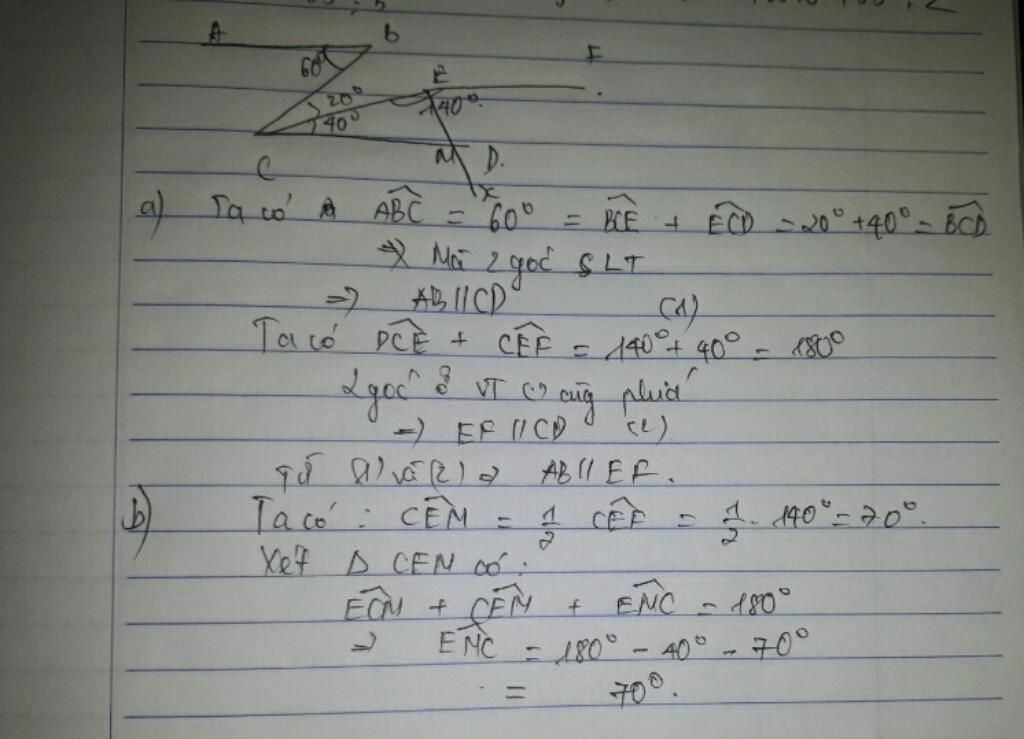 A B
60° E F
20° 40°
40°
C M D.
x
a) Ta có ABC = 60° = BCE + ECD = 20° + 40° = BCD
Mà 2 góc SLT
=> AB // CD (1)
Ta có DCE + CEF = 140° + 40° = 180°
2 góc ở VT cùg phía
=> EF // CD (2)
Từ (1) và (2) => AB // EF.
b) Ta có : CEM = 1/2 CEF = 1/2 . 140° = 70°.
Xét Δ CEM có :
ECM + CEM + EMC = 180°
=> EMC = 180° - 40° - 70°
= 70°.